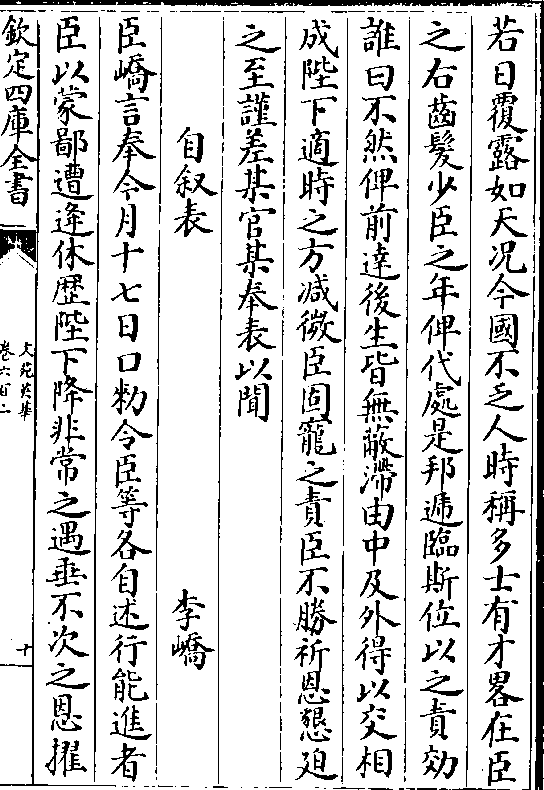 若日覆露如天况今國不乏人時稱多士有才畧在臣
之右齒髮少臣之年俾代處是邦遞臨斯位以之責効
誰曰不然俾前達後生皆無蔽滯由中及外得以交相
成陛下適時之方減微臣固寵之責臣不勝祈恩懇迫
之至謹差某官某奉表以聞
自叙表 李嶠
臣嶠言奉今月十七日口勑令臣等各自述行能進者
臣以蒙鄙遭逢休歴陛下降非常之遇垂不次之恩擢
欽定四庫全書
文苑英華
卷六百二
十